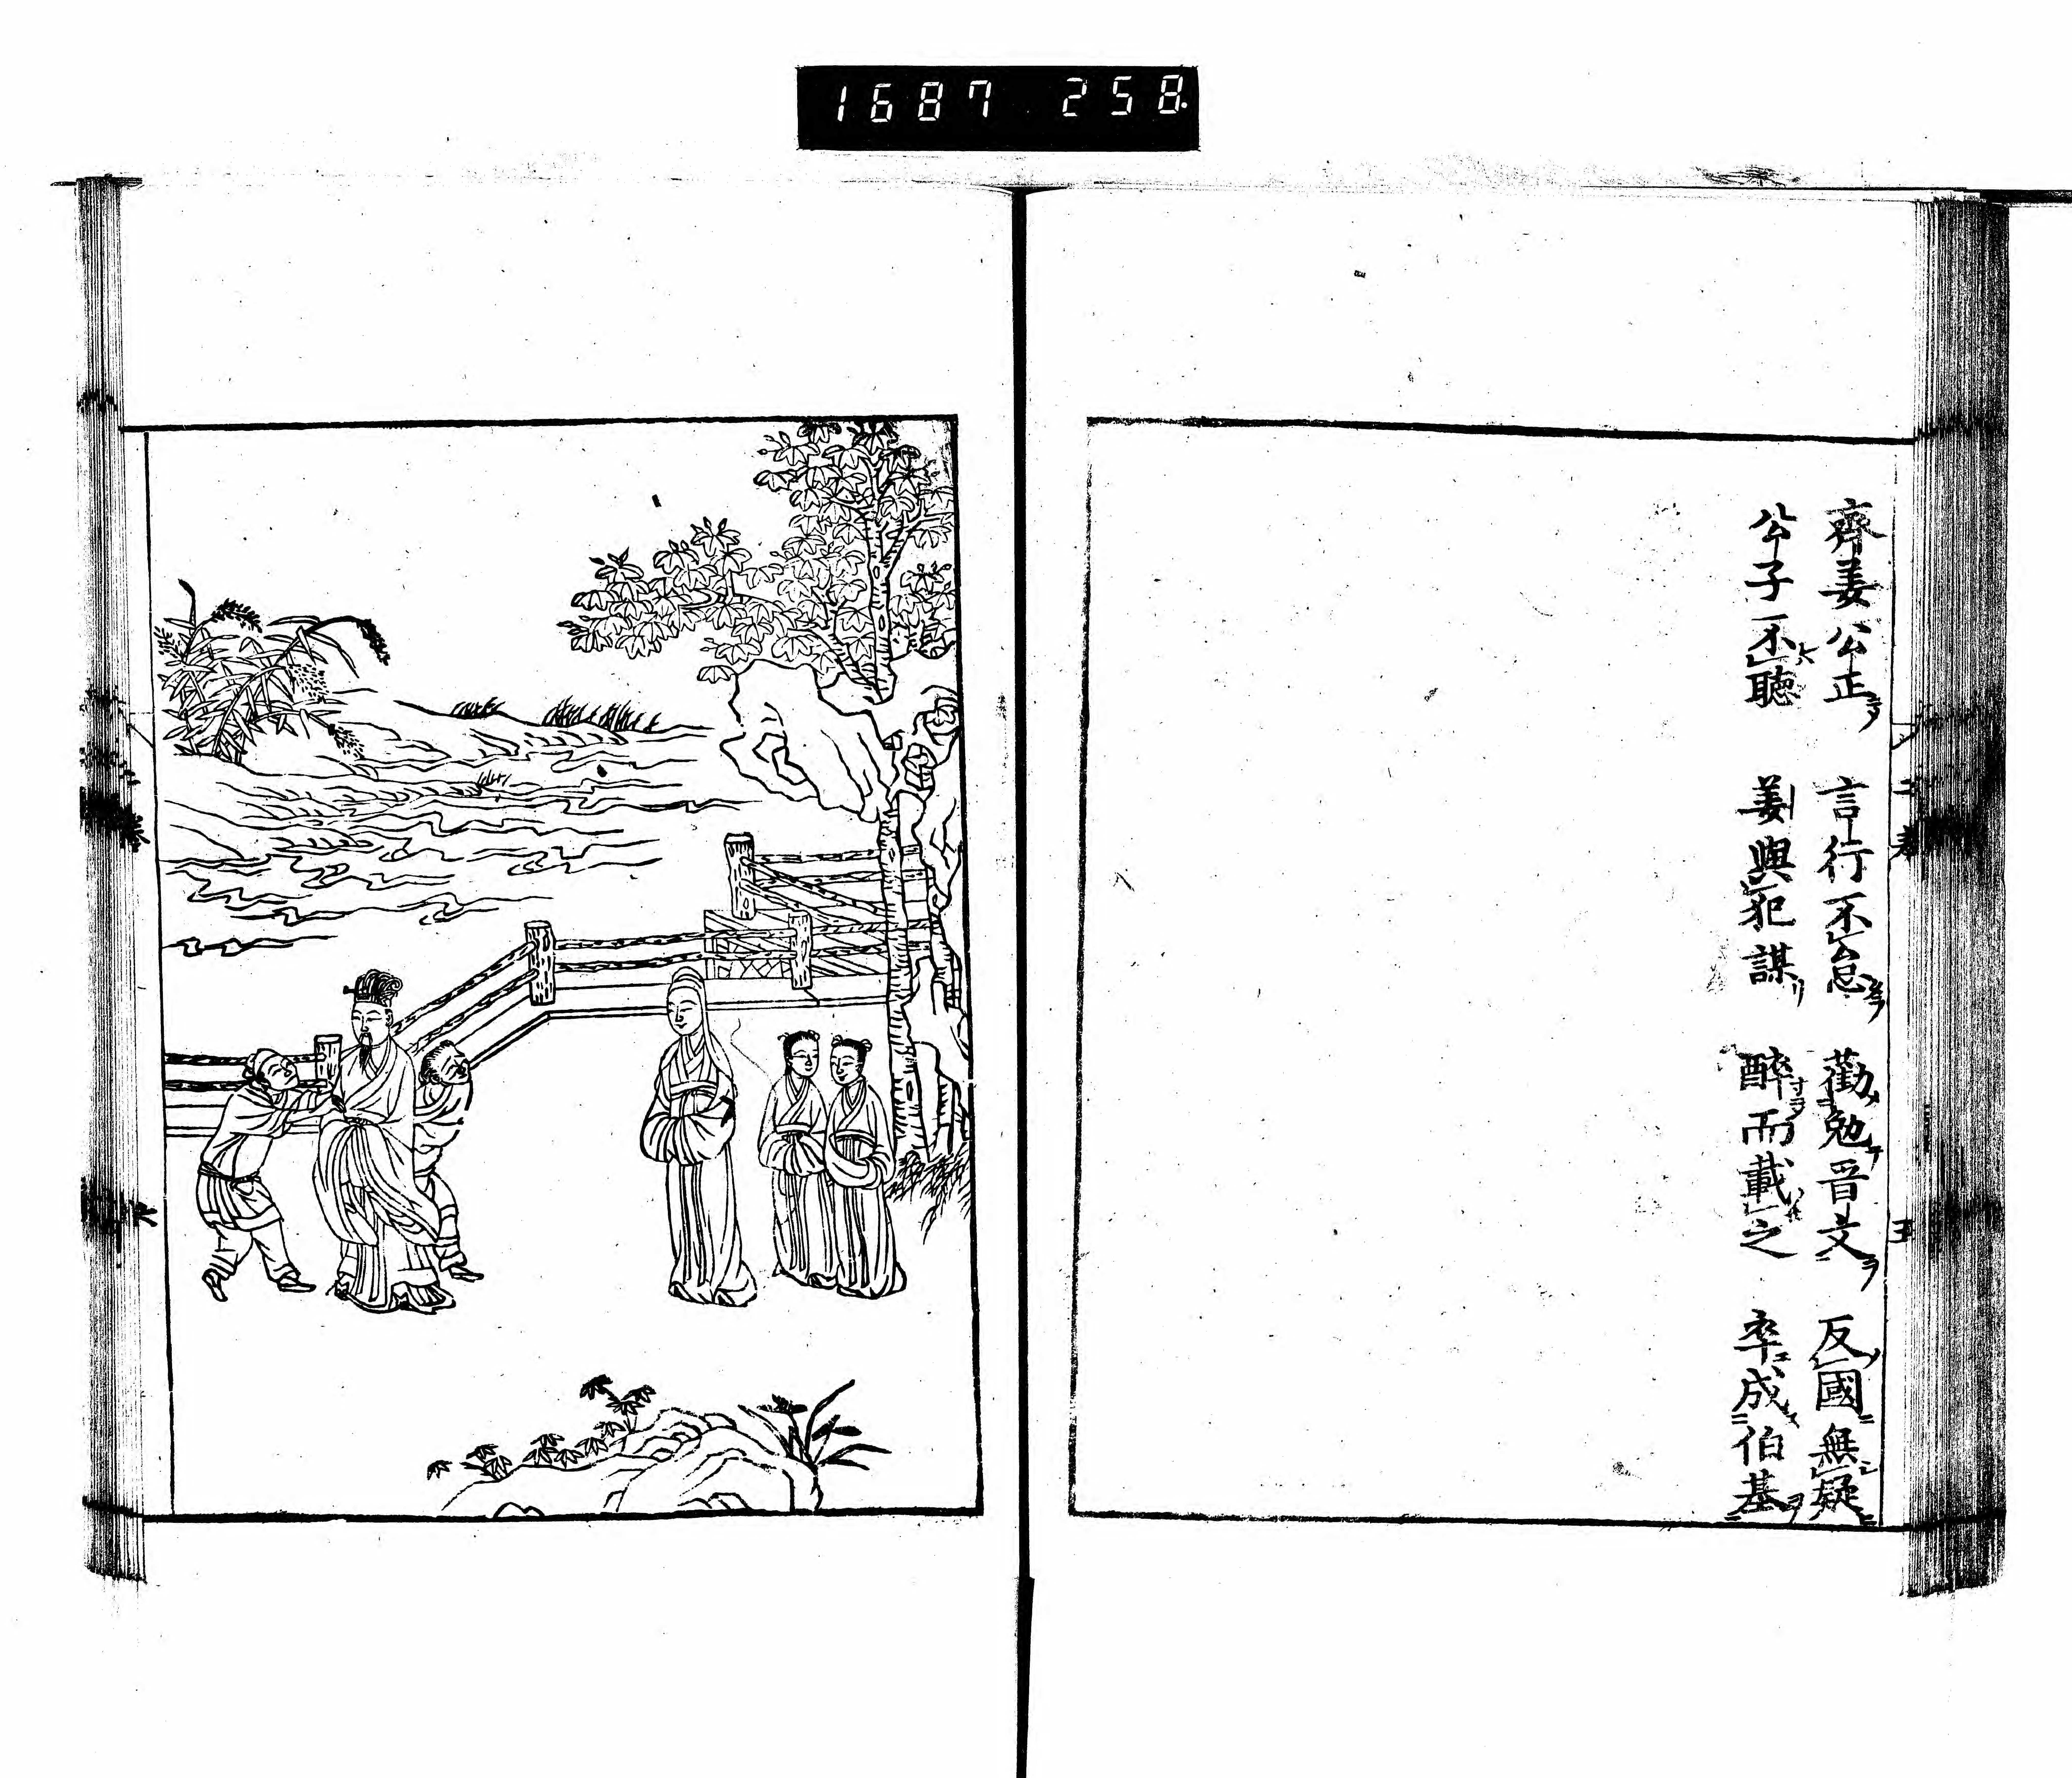 1687 258
齊姜公正 言行不怠 勸勉晉文 反國無疑
公子不聽 姜與犯謀 醉而載之 卒成伯基